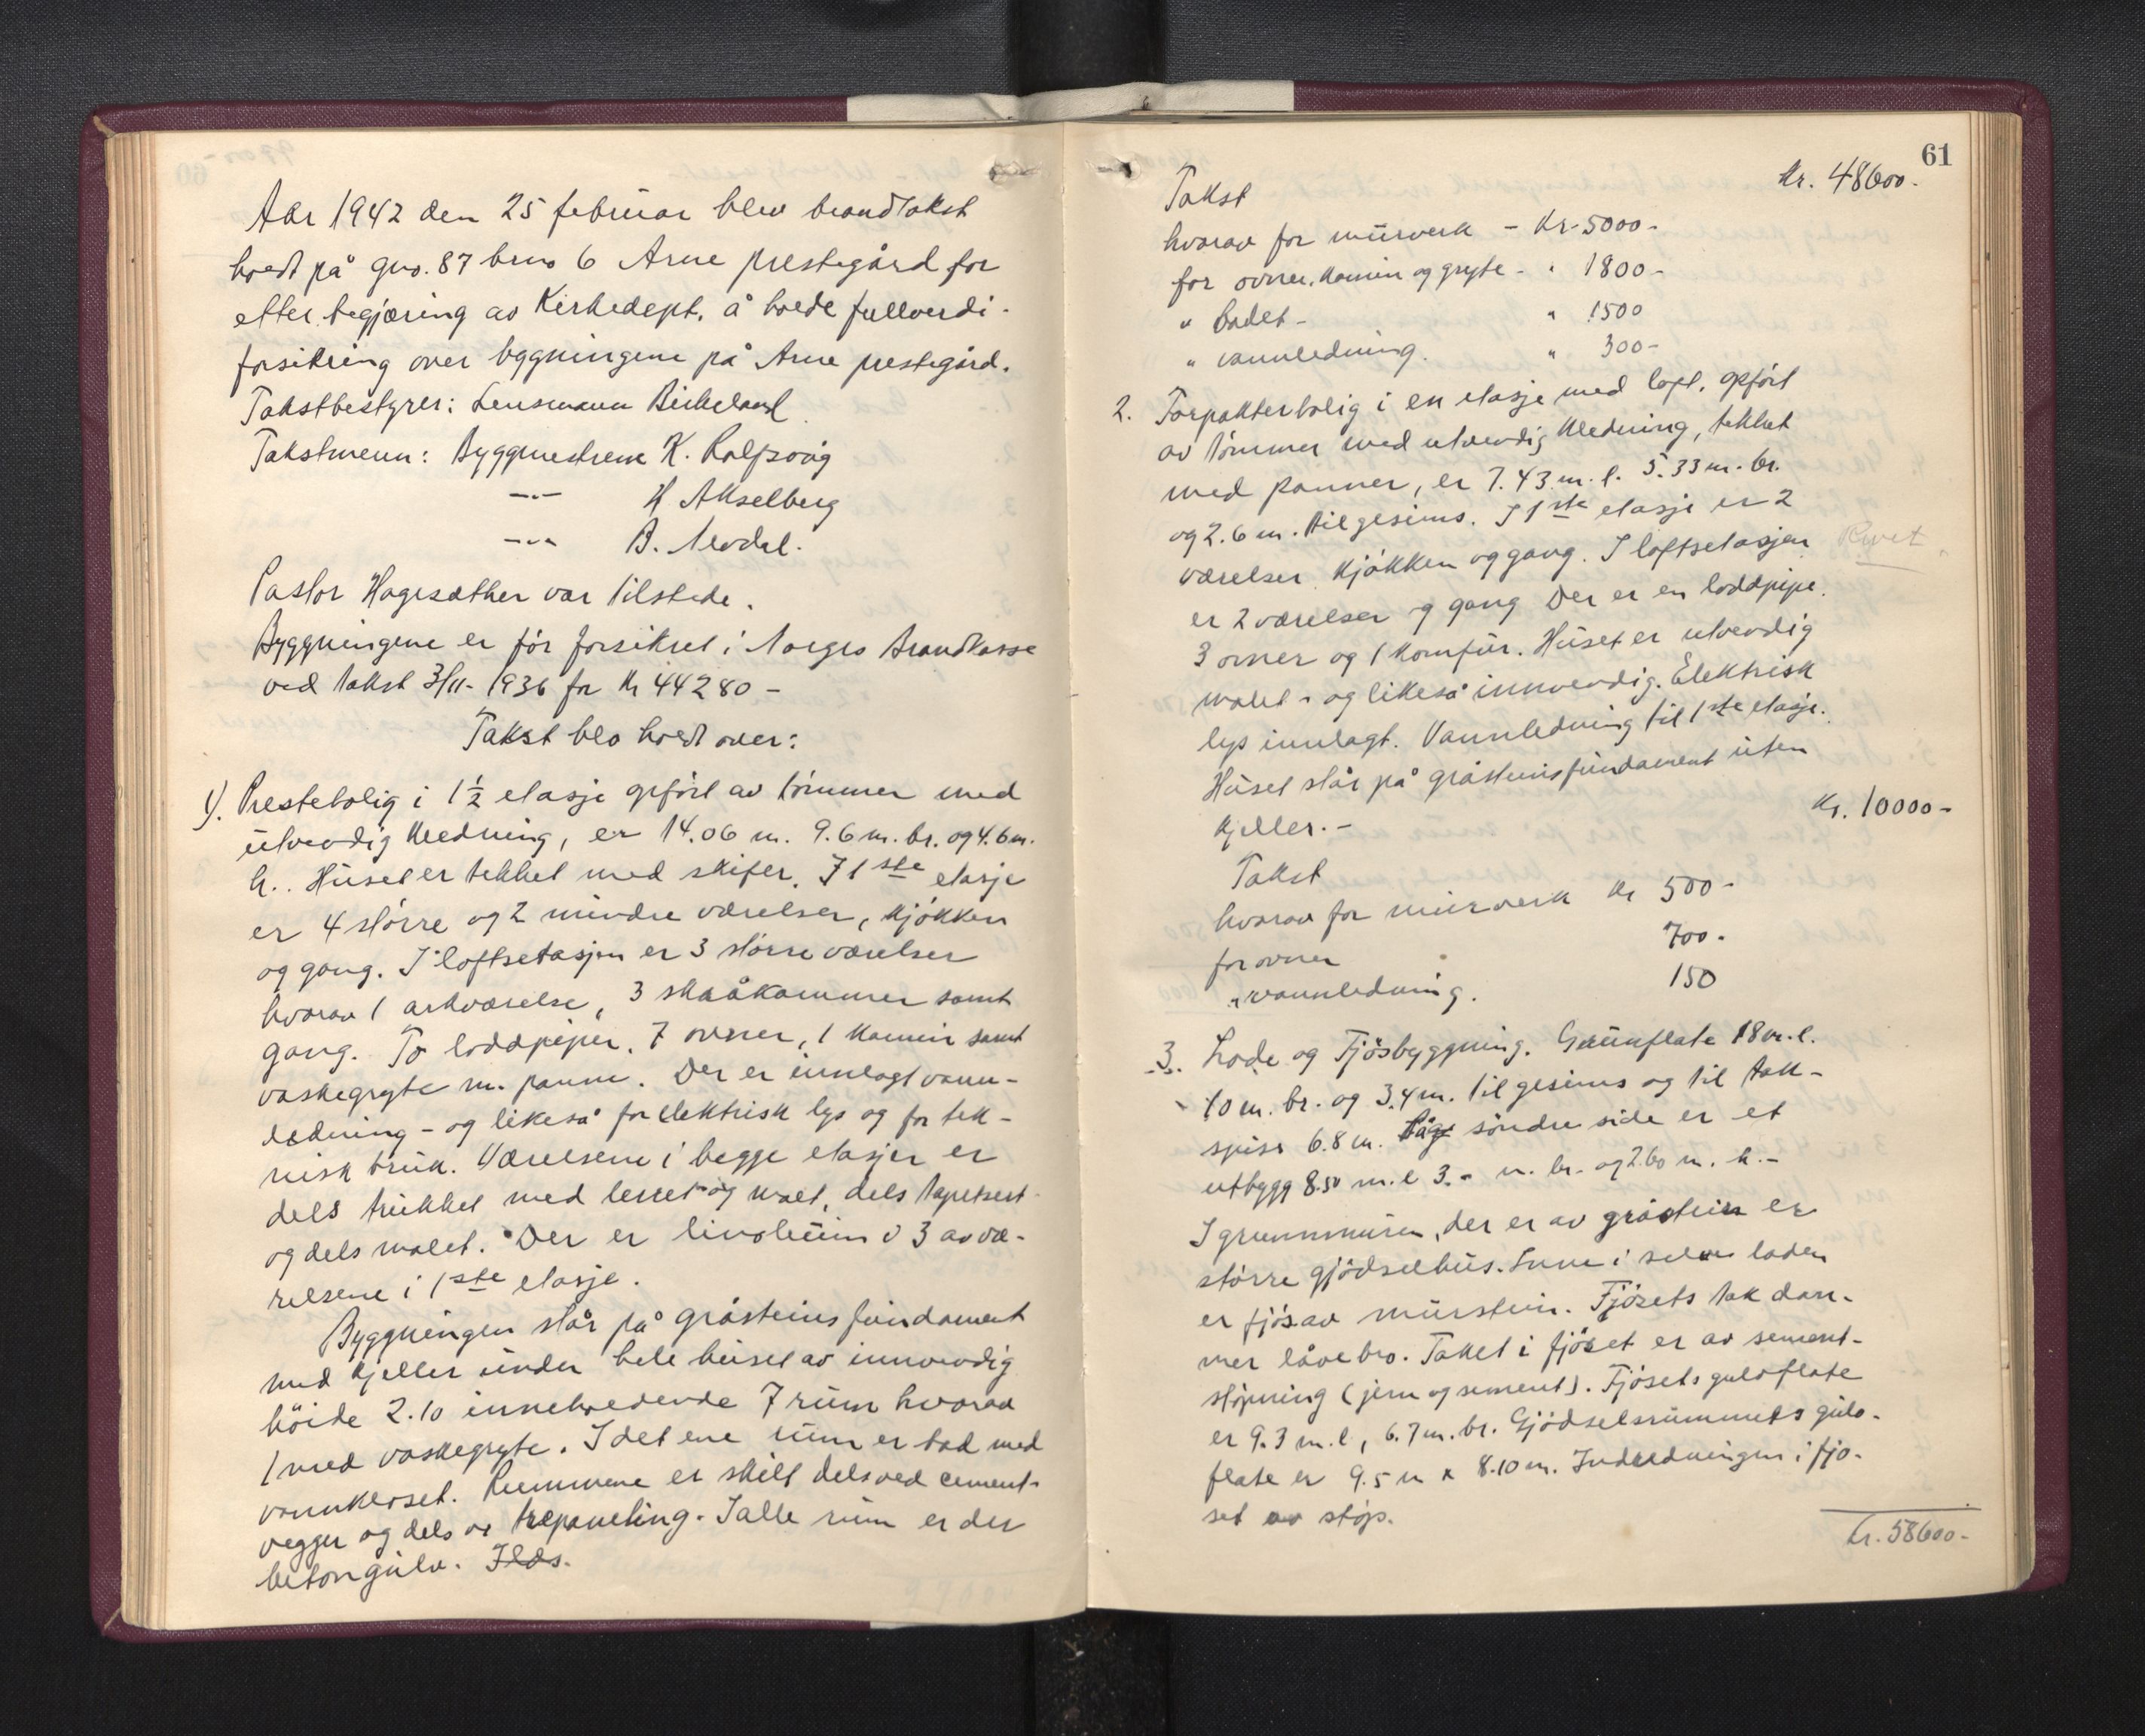 Aar 1942 den 25 februar blev brandtakst
holdt på gno. 87 brno 6 Arne prestegård for
efter begjæring av Kirkedept. å holde fullverdi-
forsikring over bygningene på Arne prestegård.
Takstbestyrer: Lensmann Birkeland
Takstmenn: Byggmestrene K. Rolfsvåg
—"— H Akselberg
—"— B.
Pastor Hagesæther var tilstede.
Byggningene er før forsikret i Norges Brandkasse
ved takst 3/11- 1936 for Kr 44280 -
Takst blev holdt over:
1). Prestebolig i 1½ etasje opført av tømmer med
utvendig kledning, er 14.06 m. 9.6 m. br. og 4.6 m.
h.. Huset er tekket med skifer. I 1ste etasje
er 4 større og 2 mindre værelser, kjøkken
og gang. I loftsetasjen er 3 større værelser
hvorav 1 arkværelse, 3 skråkammer samt
gang. To loddpiper, 7 ovner, 1 kamin samt
vaskegryte m. panne. Der er innlagt vann-
ledning - og likeså for elektrisk lys og for tek-
nisk bruk. Værelsene i begge etasjer er
dels trukket med lerret og malt, dels tapetsert
og dels malet. Der er linoleum i 3 av væ-
relsene i 1ste etasje.
Byggningen står på gråsteinsfundament
med kjeller under hele huset av innvendig
höide 2.10 inneholdende 7 rum hvorav
1 med vaskegryte. I det ene rum er bad med
vannkloset. Rummene er skilt dels ved cement-
vegger og dels av trepaneling. I alle rum er der
betongulv.
61
Takst Kr. 48600.
hvorav for murverk - Kr. 5000-
for ovner, kamin og gryte - " 1800-
" badet - " 1500
" vannledning. " 300-
2. Forpakterbolig i en etasje med loft, opført
av tømmer med utvendig kledning, tekket
med panner, er 7.43 m. l. 5.33 m. br.
og 2.6 m. til gesims. I 1ste etasje er 2
værelser kjøkken og gang. I loftsetasjen
Revet
er 2 værelser og gang Der er en loddpipe.
3 ovner og 1 komfur. Huset er utvendig
malet - og likeså innvendig. Elektrisk
lys innlagt. Vannledning til 1ste etasje.
Huset står på gråsteinsfundament uten
kjeller. -
Takst Kr. 10000-
hvorav for murverk Kr 500-
for ovner 700.
" vannledning. 150
3. Lade og Fjösbyggning. Grunflate 18 m. l.
10 m. br. og 3.4 m. til gesims og til tak-
spiss 6.8 m. søndre side er et
utbygg 8.50 m. l 3.- m. br. og 2.60 m. h.-
I grunnmuren, der er av gråstein er
større gjødselhus. Inne i selve laden
er fjös av murstein. Fjösets tak dan-
ner låvebro. Taket i fjöset er av sement-
støpning (jern og sement). Fjösets gulvflate
er 9.3 m. l, 6.7 m. br. Gjödselsrummets gulv-
flate er 9.5 m x 8.10 m. Indredningen i fjö-
set av støp.
Kr. 58600-